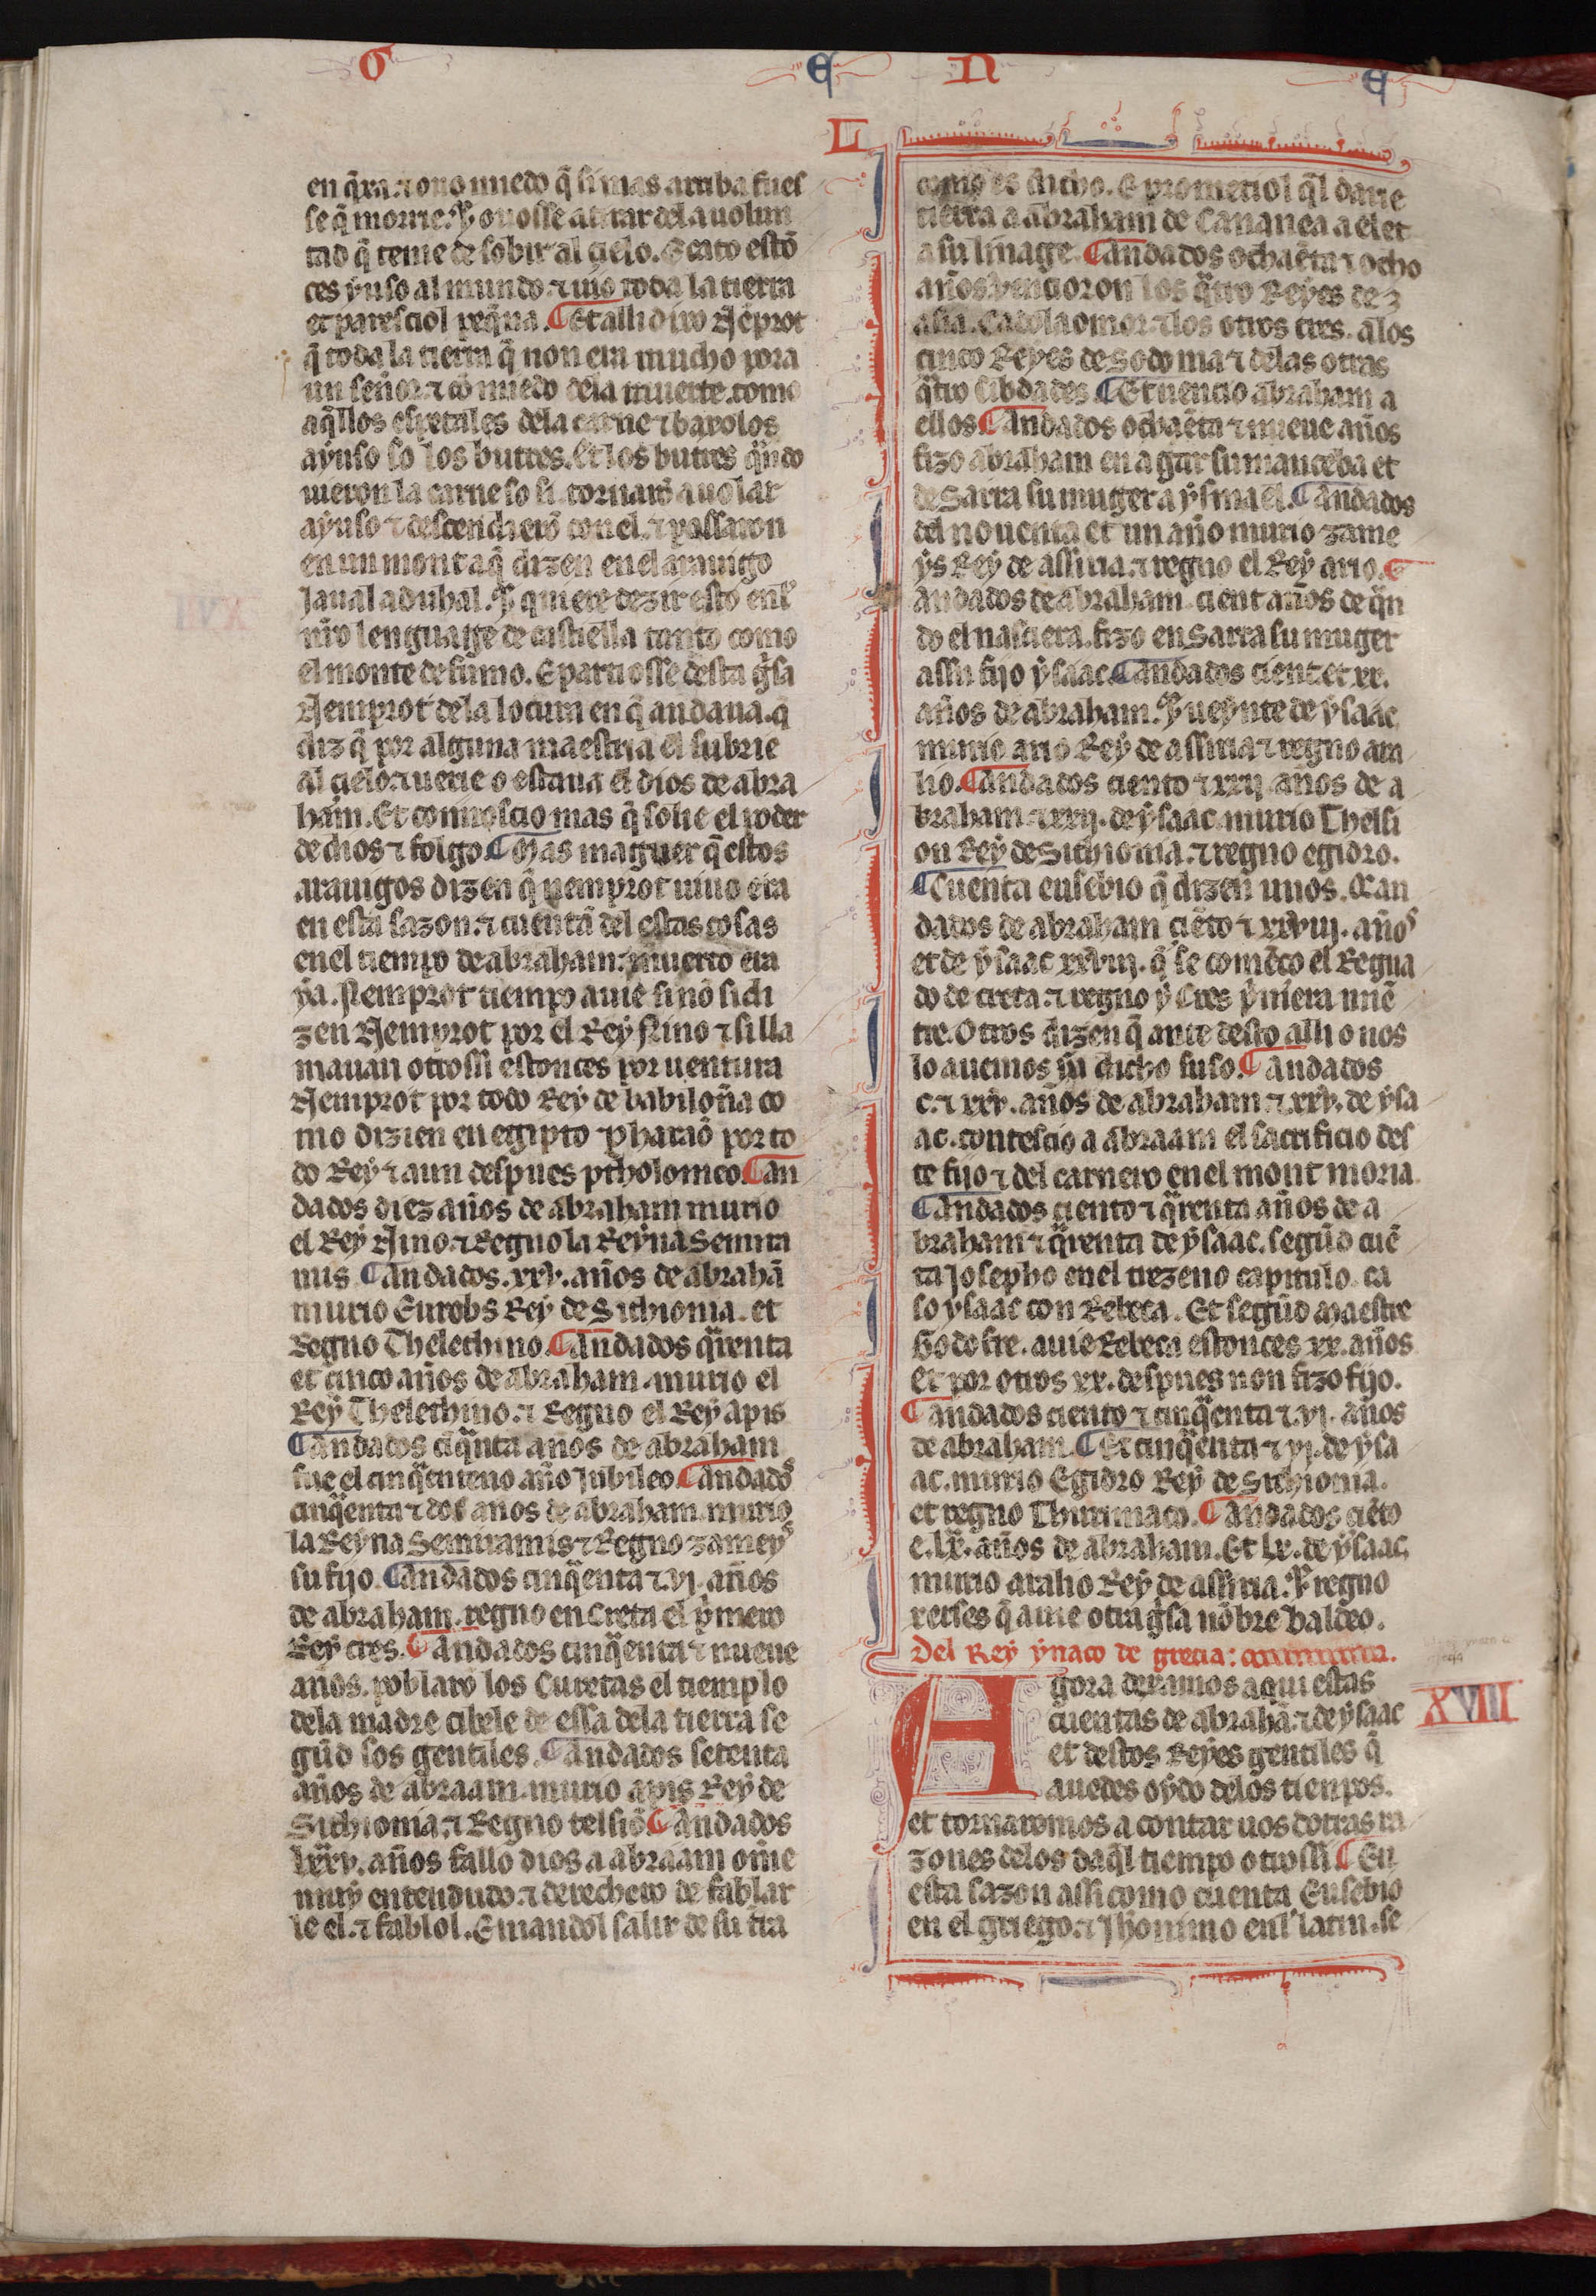 G E N E
en q̃xa. ⁊ ouo miedo q̃ si mas arriba fues
se q̃ morrie. ⁊ ouosse a tirar dela uolun
tad q̃ tenie de sobir al cielo. E cato estõ
ces yuso al mundo. ⁊ uio toda la tierra
et paresciol peq̃na. ¶ Et alli dixo Nẽprot
q̃ toda la tierra q̃ non era mucho pora
un señor. ⁊ cõ miedo dela muerte. tomo
aq̃llos espetales dela carne ⁊ baxolos
ayuso so los buitres. Et los buitres q̃ndo
uieron la carne so si. tornarõ a uolar
ayuso ⁊ descendierõ con el. ⁊ possaron
en un mont aq̃ dizen en el arauigo
Jaual aduhal. ⁊ quiere dezir esto enl
nr̃o lenguage de castiella tanto como
el monte de fumo. E partiosse desta g̃sa
Nemprot dela locura en q̃ andaua. q̃
diz q̃ por alguna maestria el subrie
al cielo. ⁊ uerie o estaua el dios de abra
ham. Et connoscio mas q̃ solie el poder
de dios ⁊ folgo. ¶ Mas maguer q̃ estos
arauigos dizen q̃ nemprot uiuo era
en esta sazon. ⁊ cuentã del estas cosas
en el tiempo de abraham: muerto era
ya. Nemprot tiempo auie si nõ si di
zen Nemprot por el Rey Nino ⁊ si lla
mauan otrossi estonces por uentura
Nemprot por todo Rey de babiloña co
mo dizien en egipto pharaõ por to
do Rey ⁊ aun despues ptholomeo. ¶ An
dados diez años de abraham murio
el Rey Nino. ⁊ Regno la Reyna Semira
mis ¶ Andados. xxv. años de abrahã
murio Eurobs Rey de Sithionia. et
Regno Thelechino. ¶ Andados q̃renta
et cinco años de abraham. murio el
Rey Thelechino. ⁊ Regno el Rey apis
¶ Andados cinq̃nta anos de abraham
fue el cinq̃nteno año Jubileo. ¶ Andados
cinq̃enta ⁊ dos anos de abraham. murio
la Reyna Semiramis ⁊ Regno zameys
su fijo. ¶ Andados cinq̃enta ⁊. vj. años
de abraham. regno en Creta el p̃mero
Rey cres. ¶ Andados cinq̃enta ⁊ nueue
años. poblarõ los Curetas el tiemplo
dela madre cibele de essa dela tierra se
gũd los gentiles. ¶ Andados setenta
años de abraam. murio apis Rey de
Sithionia. ⁊ Regno telsiõ. ¶ Andados
lxxv. años fallo dios a abraam om̃e
muy entendudo. ⁊ derechero de fablar
le el. ⁊ fablol. E mandol salir de su tr̃a
L
como es dicho. E prometiol q̃l darie
tierra a abraham de Cananea a el et
a su linage. ¶ Andados ochaẽta ⁊ ocho
años uencioron los q̃tro Reyes de 3
asia. Cadolaomor. ⁊ los otros tres. alos
cinco Reyes de Sodoma ⁊ delas otras
q̃tro cibdades. ¶ Et uencio abraham a
ellos ¶ Andados ochaẽta ⁊ nueue años
fizo abraham en agar su manceba et
de Sarra su muger a ysmael. ¶ Andados
del nouenta et un año murio zame
ys Rey de assiria. ⁊ regno el Rey ario. ¶
Andados de abraham. cient años de q̃n
do el nasciera. fizo en Sarra su muger
assu fijo ysaac. ¶ Andados cient et xx.
años de abraham. ⁊ ueynte de ysaac
murio ario Rey de assiria ⁊ regno ara
lio. ¶ Andados ciento ⁊ xxij. años de a
braham ⁊ xxij. de ysaac. murio Thelsi
on Rey de Sithionia. ⁊ regno egidro.
¶ Cuenta eusebio q̃ dizen unos. Q̃ an
dados de abraham ciẽto ⁊ xxviij. años
et de ysaac xxviij. q̃ se comẽço el Regna
do de creta. ⁊ regno y Cres p̃miera miẽ
tre. Otros dizen q̃ ante desto. assi o nos
lo auemos ya dicho suso. ¶ Andados
c. ⁊ xxv. años de abraham. ⁊ xxv. de ysa
ac. contescio a abraam el sacrificio des
te fijo ⁊ del carnero en el mont moria.
¶ Andados ciento ⁊ q̃renta años de a
braham ⁊ q̃renta de ysaac. segũd cuẽ
ta Josepho en el trezeno capitulo. ca
so ysaac con Rebeca. Et segũd maestre
Godofre. auie Rebeca estonces xx. años
et por otros xx. despues non fizo fijo.
¶ Andados ciento ⁊ cinq̃enta ⁊. vj. años
de abraham. ¶ Et cinq̃enta ⁊ vj. de ysa
ac. murio Egidro Rey de Sithionia.
et regno Thurimaco. ¶ Andados ciẽto
e. lx. años de abraham. Et lx. de ysaac.
murio aralio Rey de assiria. ⁊ regno
xerses q̃ auie otra g̃sa nõbre baldeo.
Del Rey ynaco de grecia:
Agora dexamos aqui estas
cuentas de abrahã. ⁊ de ysaac
et destos Reyes gentiles q̃
auedes oydo delos tienpos.
et tornaremos a contar uos dotras ra
zones delos daq̃l tiempo otrossi. ¶ En
esta sazon assi como cuenta Eusebio
en el griego. ⁊ Jheronimo enl latin. se
XVIII